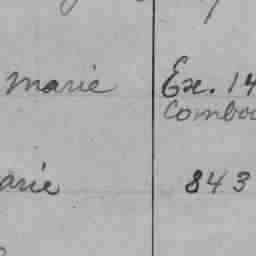 marie Ex. 14
Comboo
arie 843